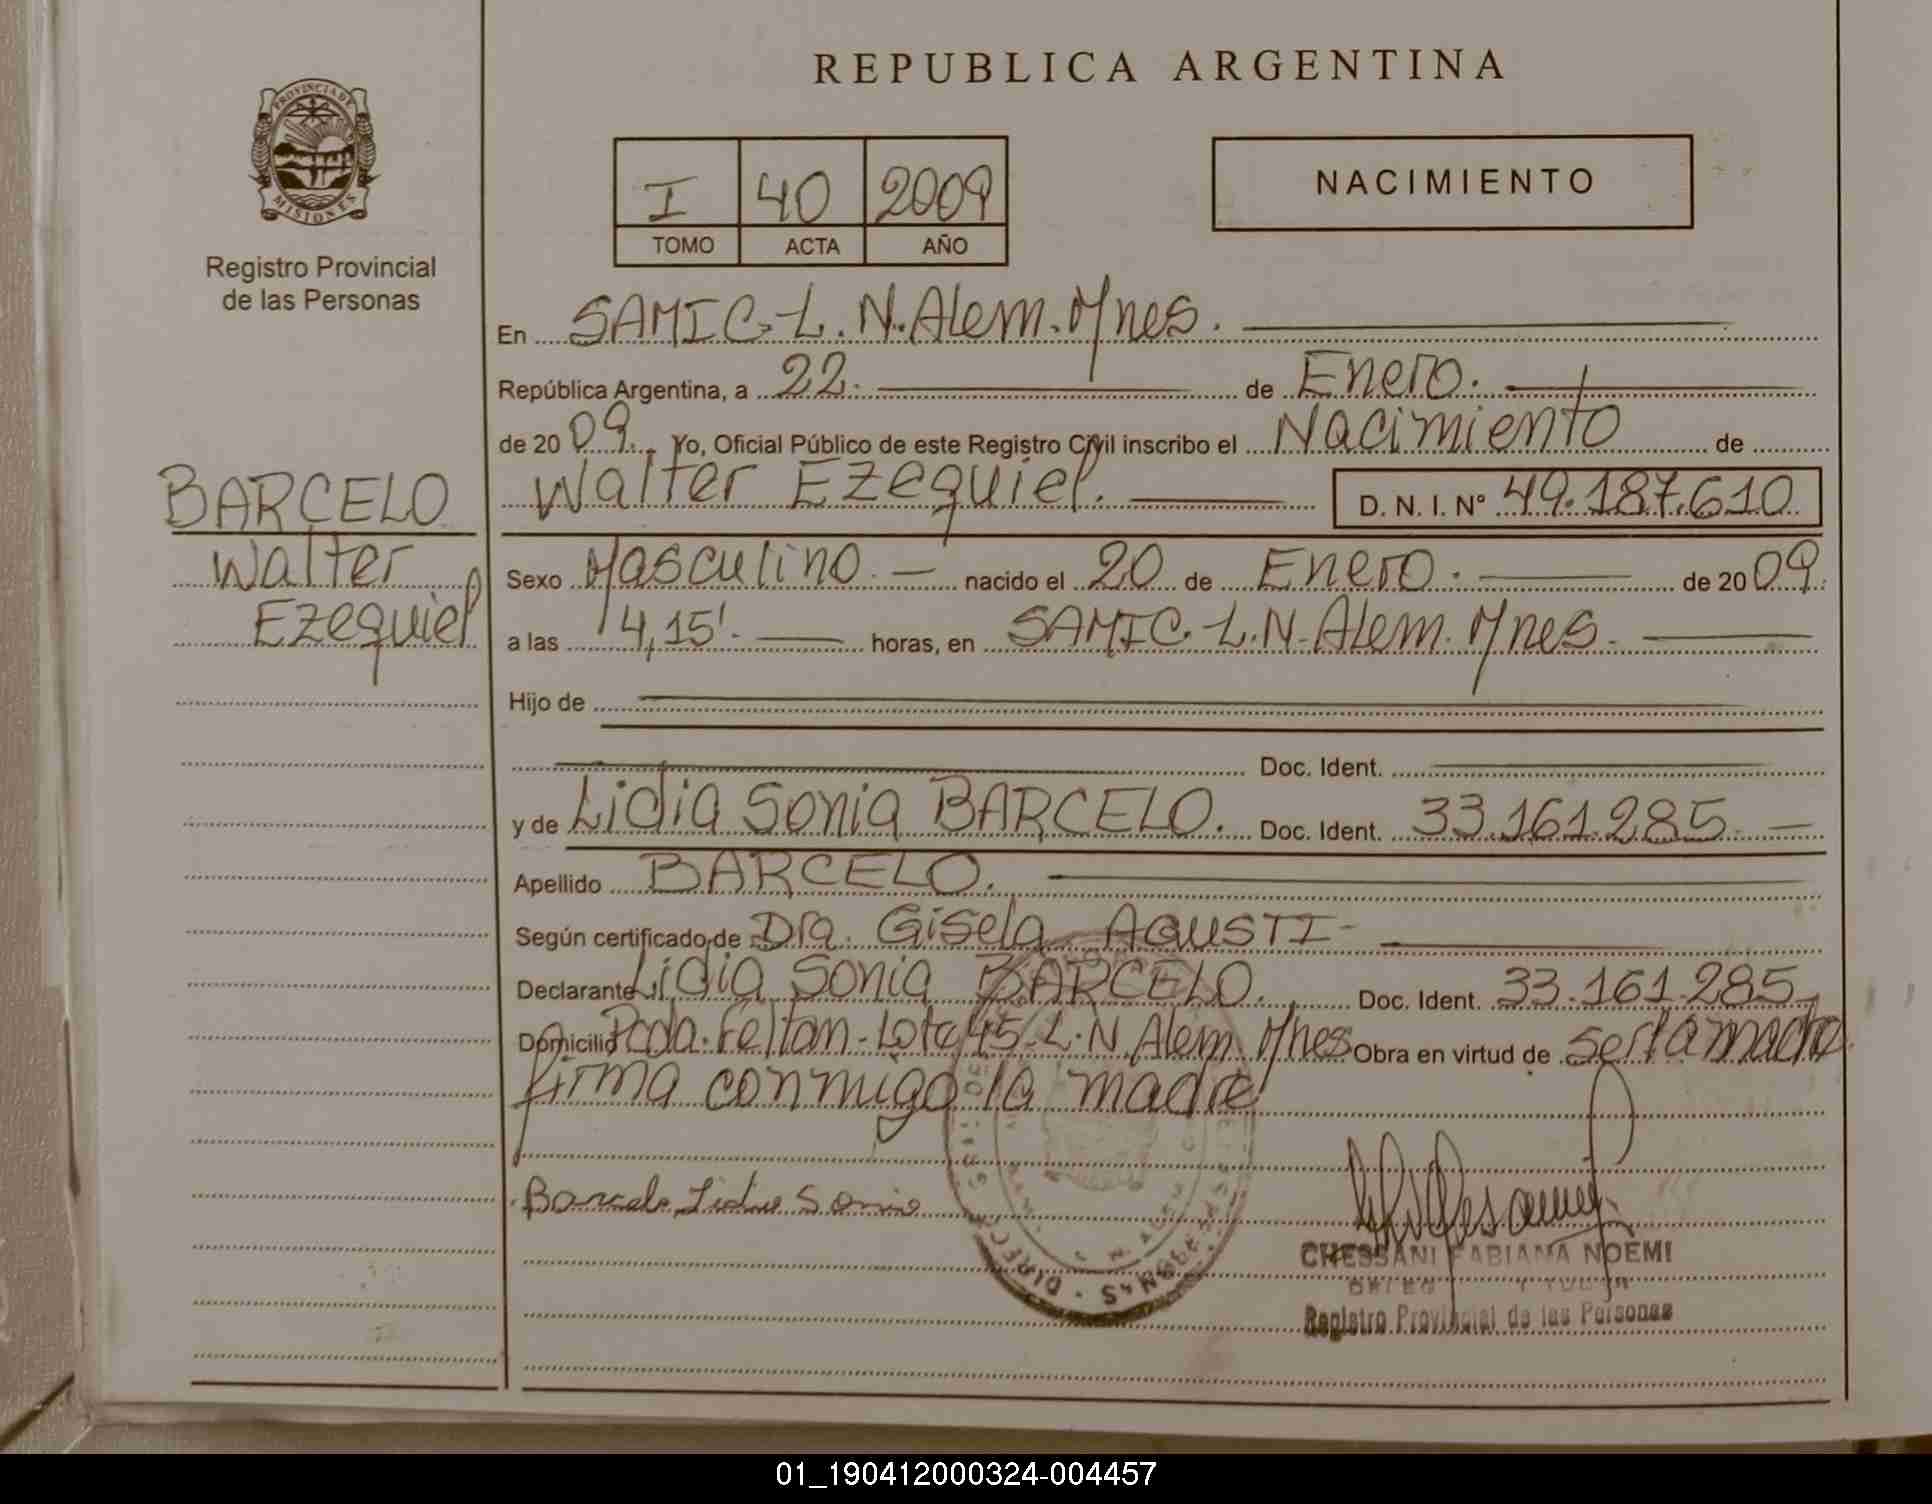 REPUBLICA ARGENTINA
PROVINCIA DE MISIONES
Registro Provincial
de las Personas
I 40 2009
TOMO ACTA AÑO
NACIMIENTO
En SAMIC. L. N. Alem. Mnes.
República Argentina, a 22. de Enero.
de 20 09. Yo, Oficial Público de este Registro Civil inscribo el Nacimiento de
Walter Ezequiel. D. N. I. N° 49.187.610
BARCELO
Walter
Ezequiel
Sexo Masculino. nacido el 20 de Enero. de 20 09.
a las 14,15'. horas, en SAMIC. L. N. Alem. Mnes.
Hijo de
Doc. Ident.
y de Lidia Sonia BARCELO. Doc. Ident. 33.161.285.
Apellido BARCELO.
Según certificado de Dra. Gisela AGUSTI
Declarante Lidia Sonia BARCELO. Doc. Ident. 33.161.285
Domicilio Pcda. Feltan - Lote 45. L. N. Alem. Mnes Obra en virtud de ser la madre
firma conmigo la madre
Barcelo Lidia Sonia
CHESSANI FABIANA NOEMI
Registro Provincial de las Personas
01_190412000324-004457